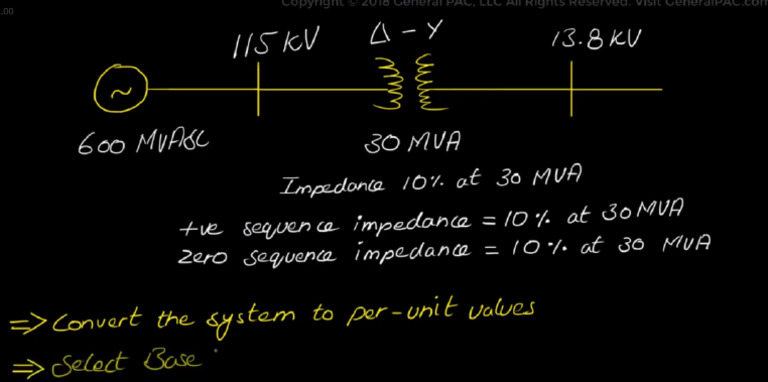 .00
Copyright © 2018 General PAC, LLC All Rights Reserved. Visit GeneralPAC.com
115 KV Δ - Y 13.8 KV
600 MVASC 30 MVA
Impedance 10% at 30 MVA
+ve sequence impedance = 10% at 30 MVA
Zero sequence impedance = 10% at 30 MVA
=> Convert the system to per-unit values
=> Select Base